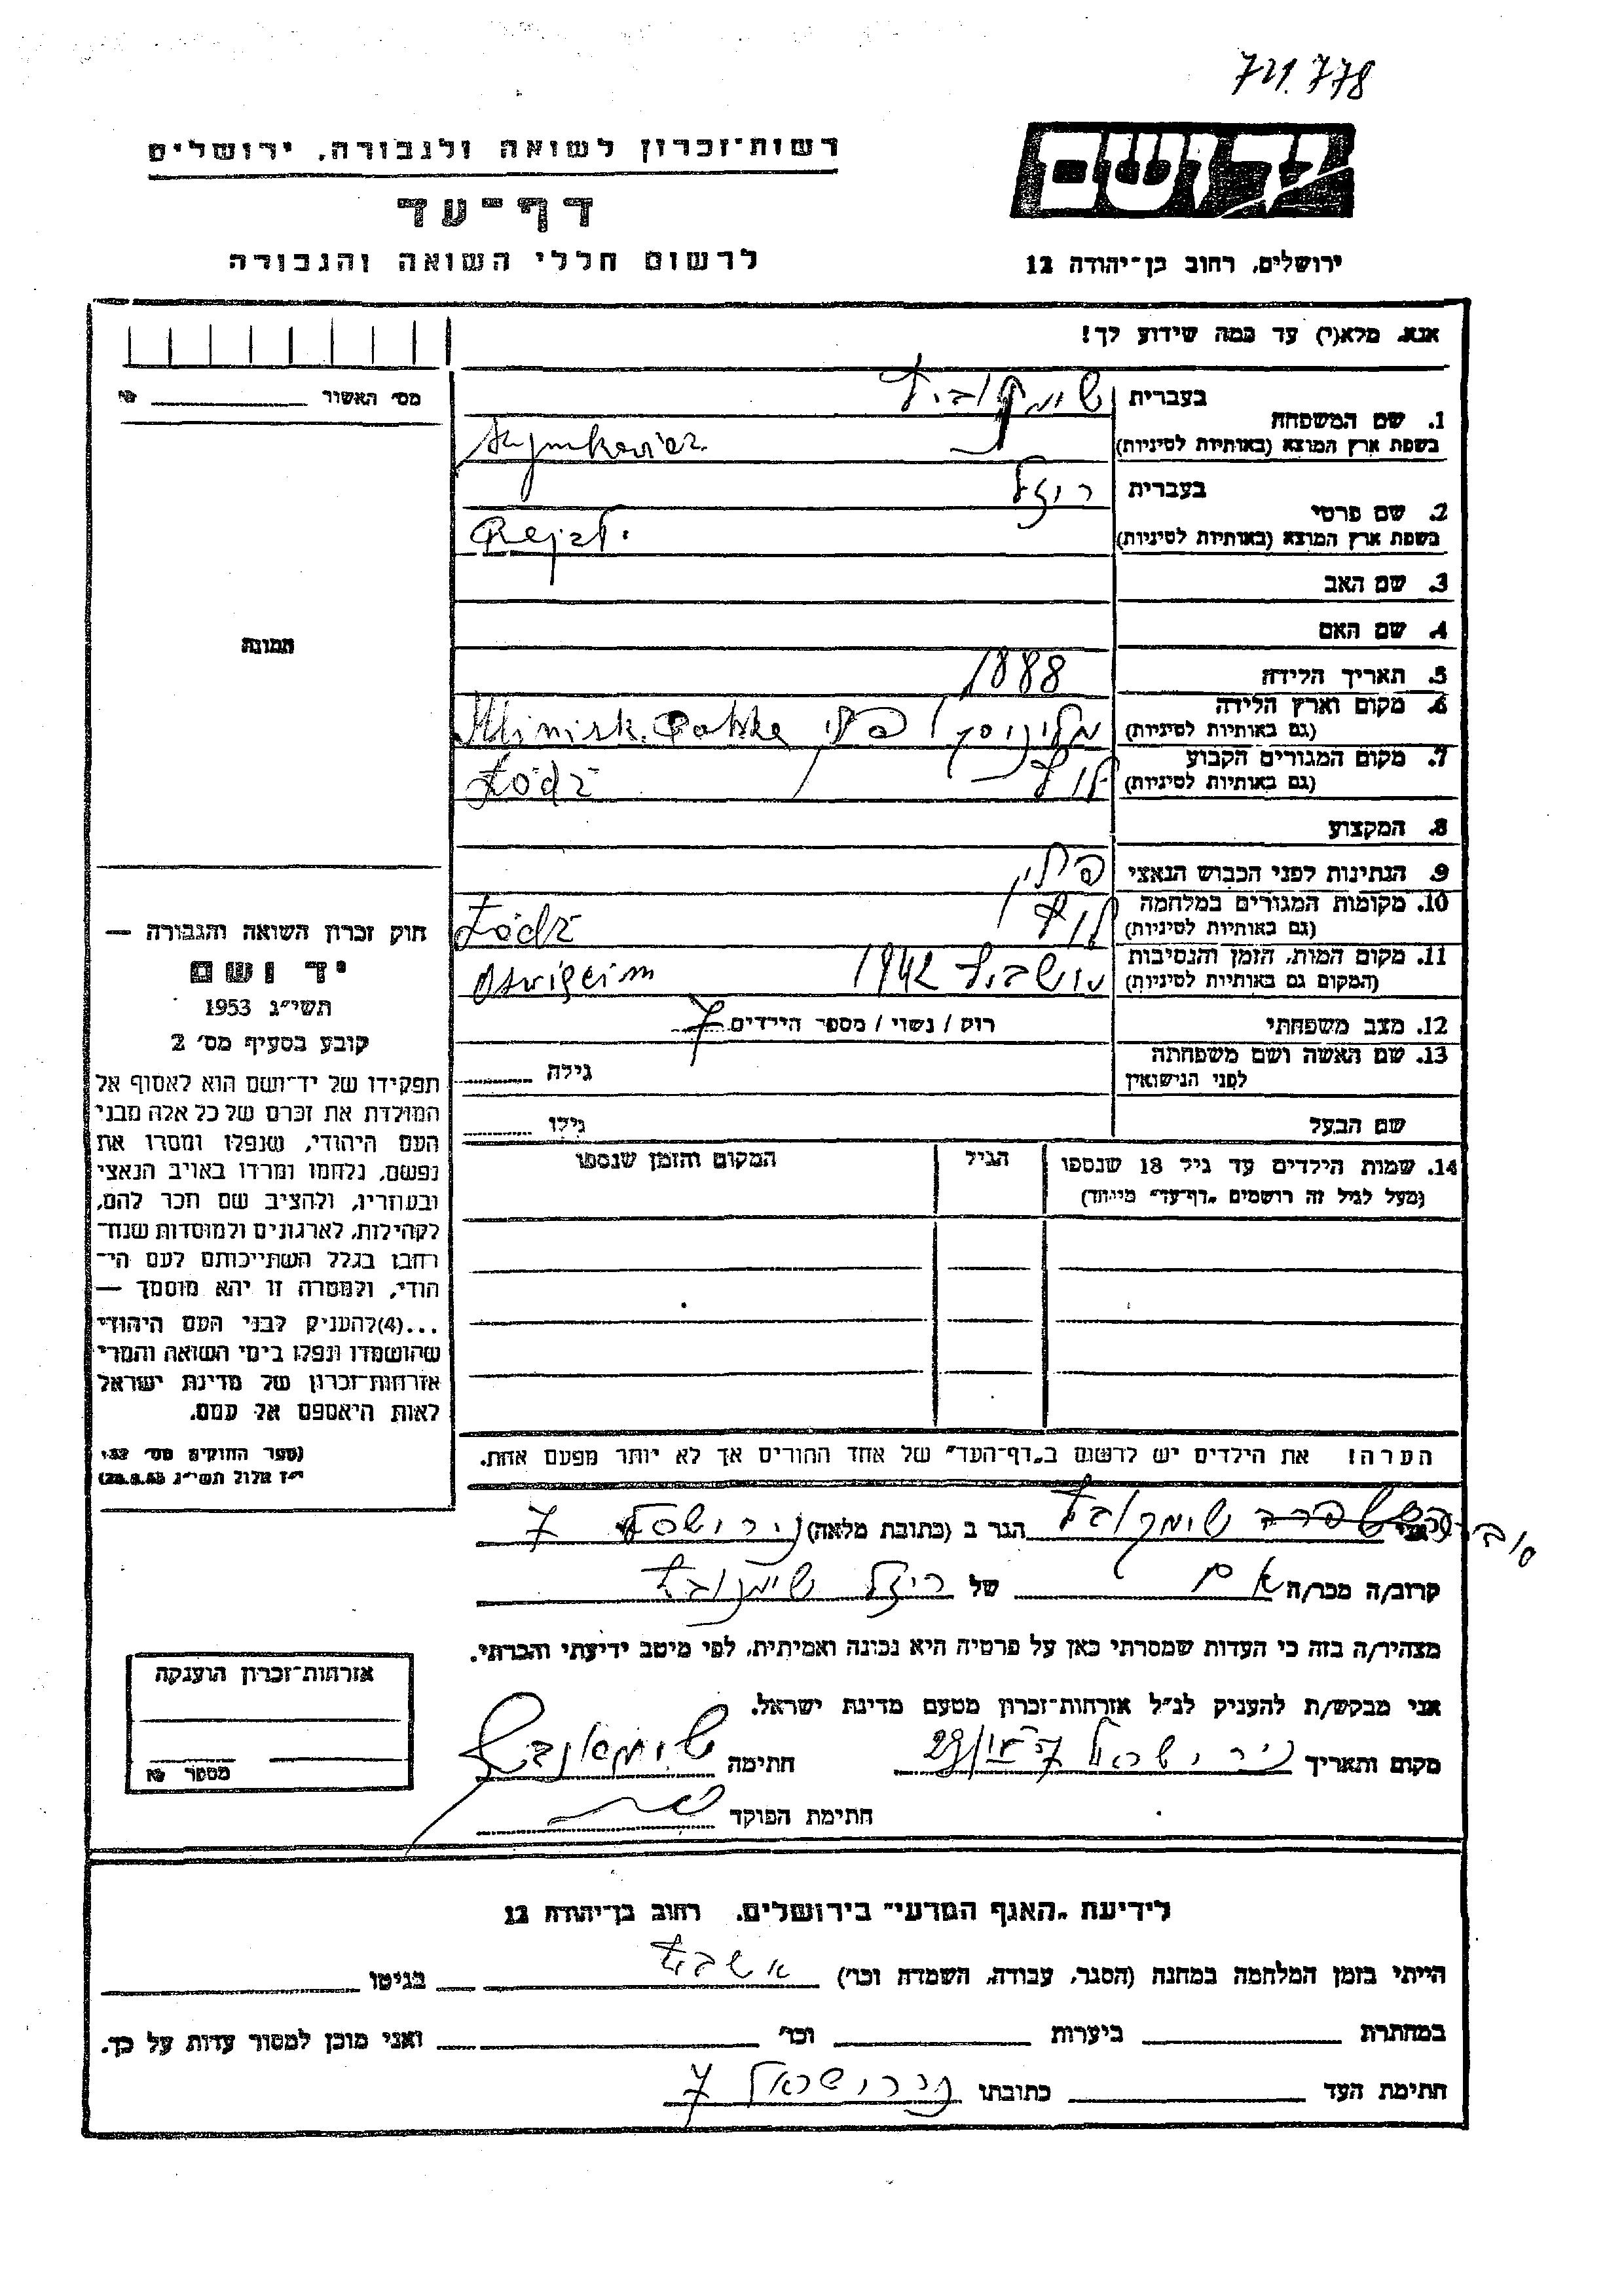 721.778
יד ושם
רשות־זכרון לשואה ולגבורה, ירושלים
דף־עד
לרשום חללי השואה והגבורה
ירושלים, רחוב בן־יהודה 12
אנא, מלא(י) עד כמה שידוע לך!
מס׳ האשור №
1. שם המשפחה
בעברית שימקוביץ
בשפת ארץ המוצא (באותיות לטיניות) Szymkowicz
2. שם פרטי
בעברית ריזל
בשפת ארץ המוצא (באותיות לטיניות) Rejzl
3. שם האב
4. שם האם
תמונה
5. תאריך הלידה 1888
6. מקום וארץ הלידה
(גם באותיות לטיניות) פולין Polska
7. מקום המגורים הקבוע
(גם באותיות לטיניות) לודז Łódź
8. המקצוע
9. הנתינות לפני הכבוש הנאצי פולין
10. מקומות המגורים במלחמה
(גם באותיות לטיניות) לודז Łódź
11. מקום המות, הזמן והנסיבות
(המקום גם באותיות לטיניות) אושביץ 1942 Oswięcim
12. מצב משפחתי רוק / נשוי / מספר הילדים 7
13. שם האשה ושם משפחתה
לפני הנישואין גילה
שם הבעל גילו
14. שמות הילדים עד גיל 18 שנספו הגיל המקום והזמן שנספו
(מעל לגיל זה רושמים „דף־עד״ מיוחד)
הערה: את הילדים יש לרשום ב„דף־העד״ של אחד ההורים אך לא יותר מפעם אחת.
חוק זכרון השואה והגבורה —
יד ושם
תשי״ג 1953
קובע בסעיף מס׳ 2
תפקידו של יד־ושם הוא לאסוף אל
המולדת את זכרם של כל אלה מבני
העם היהודי, שנפלו ומסרו את
נפשם, נלחמו ומרדו באויב הנאצי
ובעוזריו, ולהציב שם וזכר להם,
לקהילות, לארגונים ולמוסדות שנח־
רבו בגלל השתייכותם לעם הי־
הודי, ולמטרה זו יהא מוסמך —
...(4) להעניק לבני העם היהודי
שהושמדו ונפלו בימי השואה והמרי
אזרחות־זכרון של מדינת ישראל
לאות היאספם אל עמם.
(ספר החוקים מס׳ 132
י״ז אלול תשי״ג 28.8.53)
אני שימקוביץ הגר ב (כתובת מלאה) ניר ישראל 7
קרוב/ה מכר/ה אם של ריזל שימקוביץ
מצהיר/ה בזה כי העדות שמסרתי כאן על פרטיה היא נכונה ואמיתית, לפי מיטב ידיעתי והכרתי.
אני מבקש/ת להעניק לנ״ל אזרחות־זכרון מטעם מדינת ישראל.
מקום ותאריך ניר ישראל חתימה שימקוביץ
חתימת הפוקד
אזרחות־זכרון הוענקה
מספר №
לידיעת „האגף המדעי״ בירושלים, רחוב בן־יהודה 12
הייתי בזמן המלחמה במחנה (הסגר, עבודה, השמדה וכו׳) אושביץ בגיטו
במחתרת ביערות וכו׳ ואני מוכן למסור עדות על כך.
חתימת העד כתובתו ניר ישראל 7